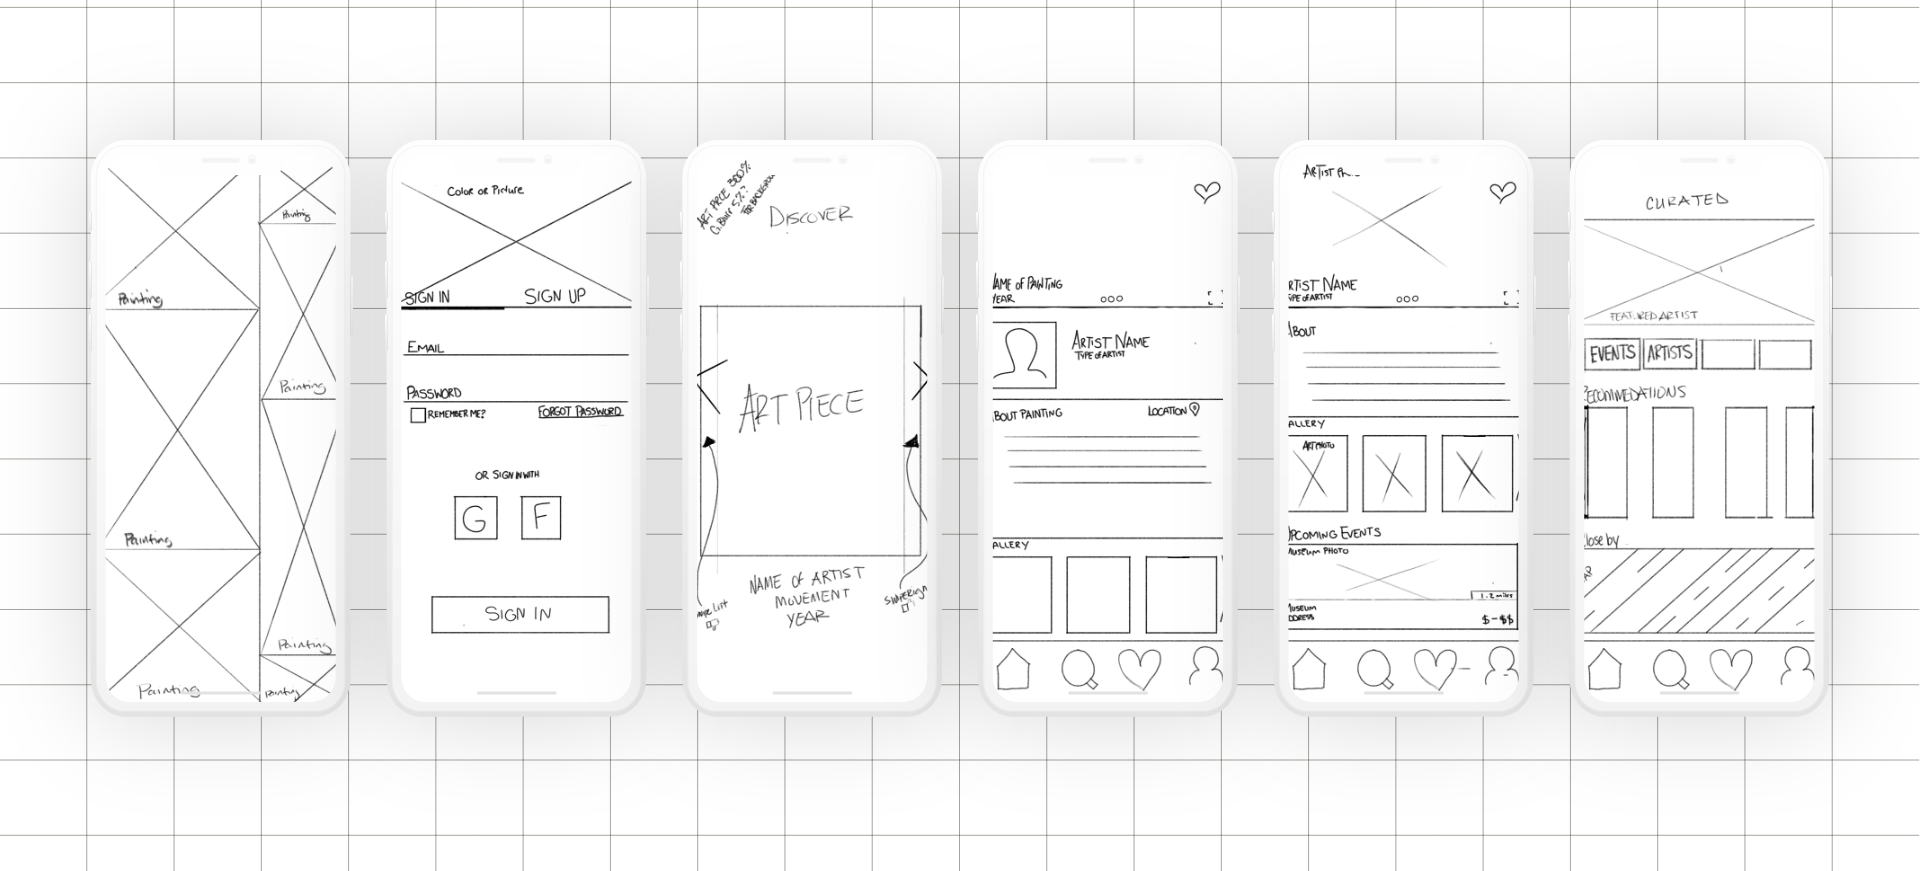 Painting
Painting
Painting
Painting
Painting
Painting
Painting
Color or Picture
SIGN IN
SIGN UP
EMAIL
PASSWORD
REMEMBER ME?
FORGOT PASSWORD
OR SIGN IN WITH
G
F
SIGN IN
ART PIECE 300%
FOR BACKGROUN
DISCOVER
ART PIECE
NAME OF ARTIST
MOVEMENT
YEAR
AME OF PAINTING
YEAR
ARTIST NAME
TYPE OF ARTIST
BOUT PAINTING
LOCATION
ALLERY
ARTIST PH...
RTIST NAME
YPE OF ARTIST
BOUT
ALLERY
ART PHOTO
PCOMING EVENTS
MUSEUM PHOTO
1.2 miles
MUSEUM
DDRESS
$-$$
CURATED
FEATURED ARTIST
EVENTS
ARTISTS
ECOMMEDATIONS
lose by